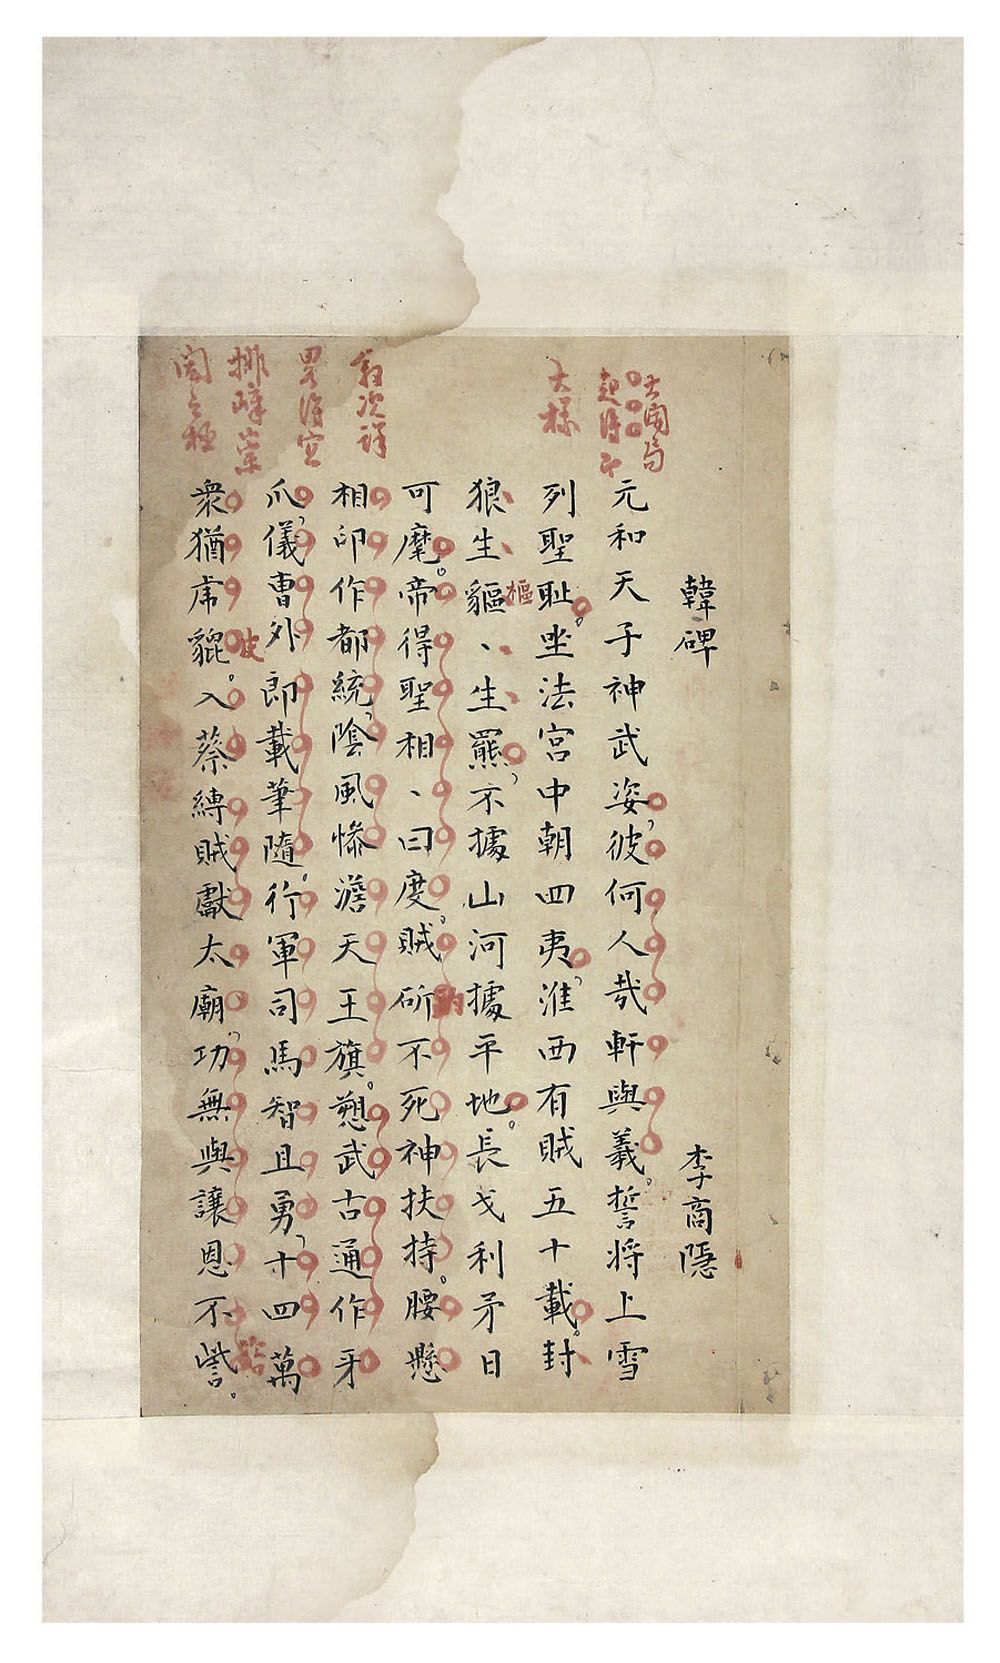 大開局
起得之
大樣
敘次詳
畧得宜
排峰崇
闳之極
韓碑 李商隱
元和天子神武姿彼何人哉軒與羲。誓將上雪
列聖耻。坐法宮中朝四夷淮西有賊五十載。封
狼生貙、生羆不據山河據平地。長戈利矛日
貙
可麾。帝得聖相、曰度。賊斫不死神扶持。腰懸
相印作都統陰風慘澹天王旗。愬武古通作牙
爪儀曹外郎載筆隨。行軍司馬智且勇十四萬
衆猶虎貔。入蔡縛賊獻太廟功無與讓恩不訾。